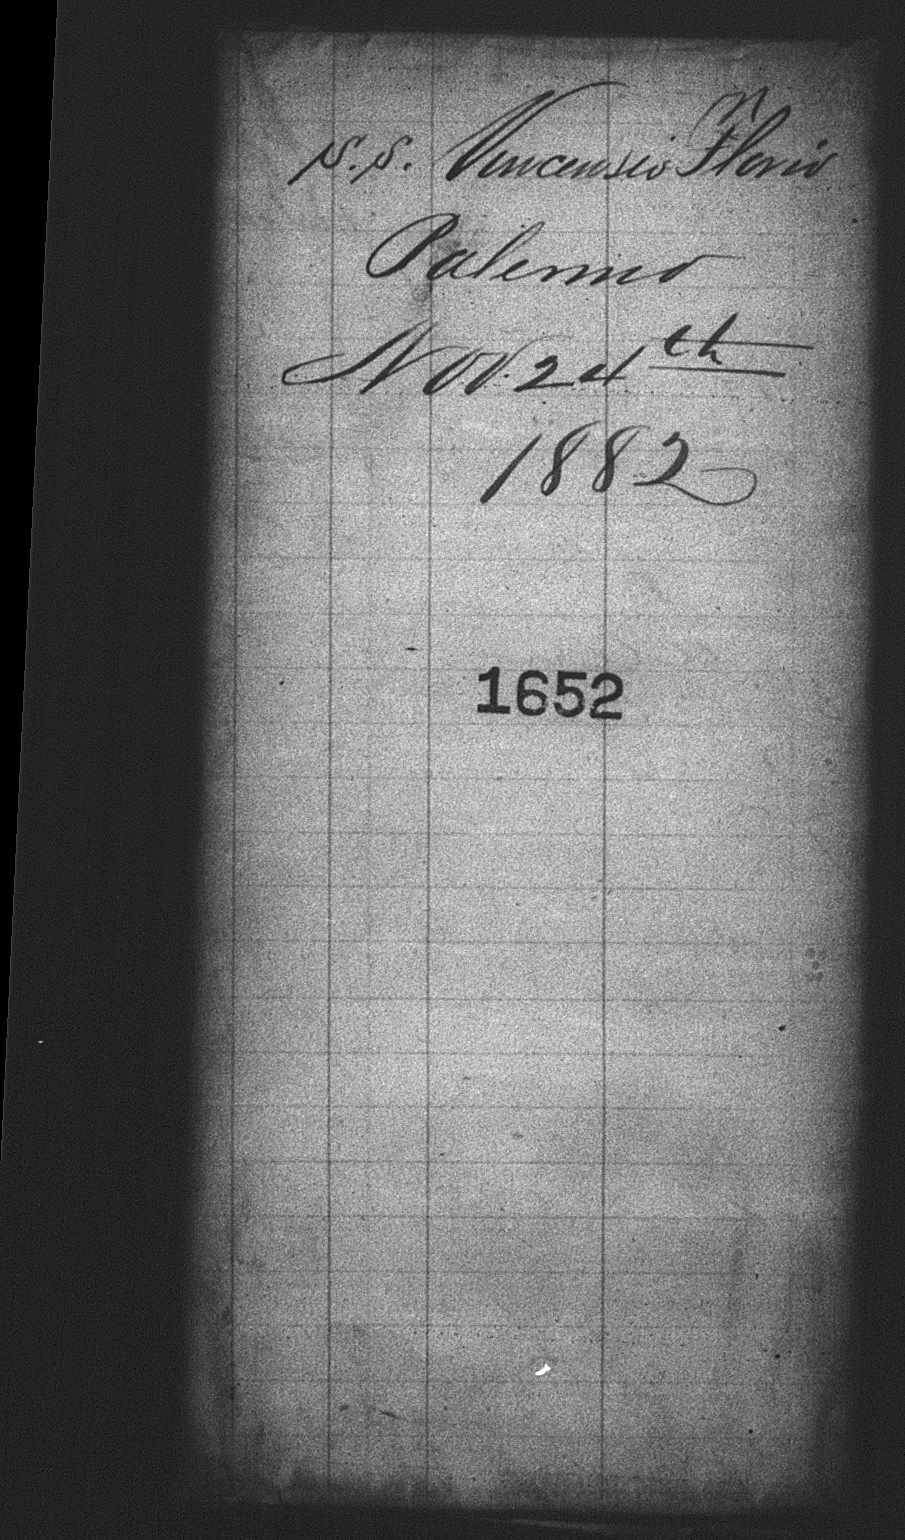 S.S. Vincensio Florio
Palermo
Nov. 24th
1882
1652